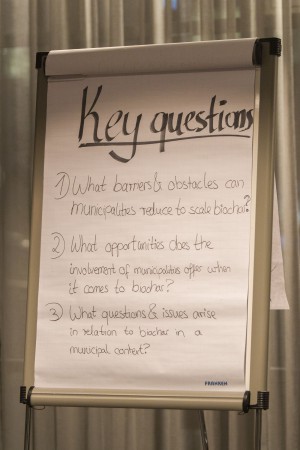 Key questions
1) What barriers & obstacles can
municipalities reduce to scale biochar?
2) What opportunities does the
involvement of municipalities offer when
it comes to biochar?
3) What questions & issues arise
in relation to biochar in a
municipal context?
FRANKEN